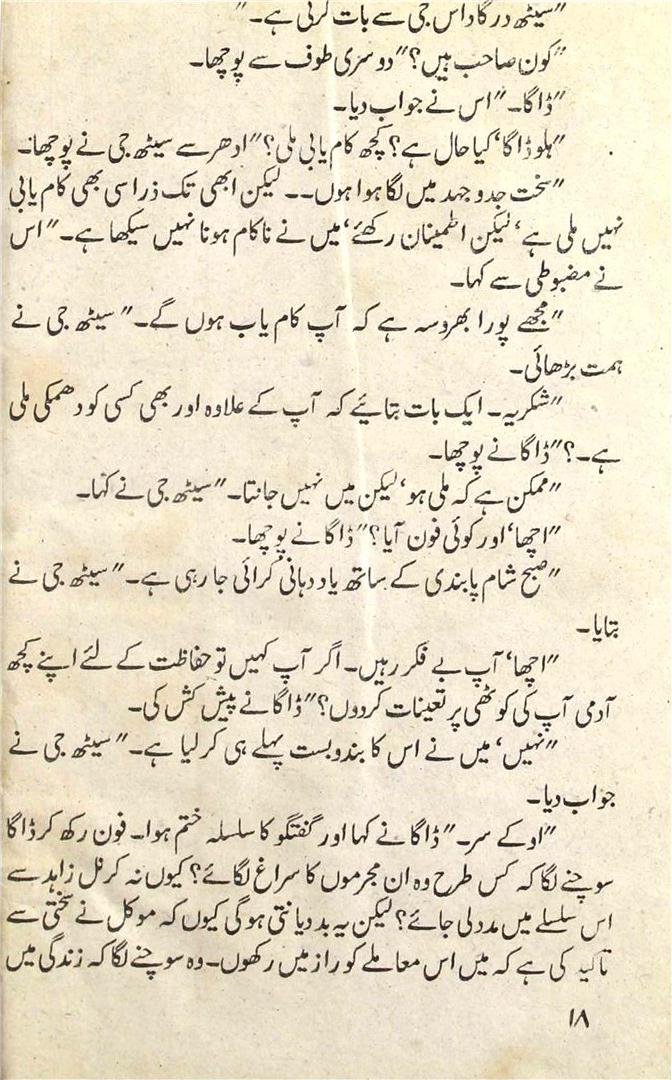 "سیٹھ درگاداس جی سے بات کرنی ہے۔"
"کون صاحب ہیں؟" دوسری طرف سے پوچھا۔
"ڈاگا۔" اس نے جواب دیا۔
"ہلو ڈاگا، کیا حال ہے؟ کچھ کام یابی ملی؟" ادھر سے سیٹھ جی نے پوچھا۔
"سخت جدوجہد میں لگا ہوا ہوں۔۔ لیکن ابھی تک ذرا سی بھی کام یابی
نہیں ملی ہے، لیکن اطمینان رکھئے، میں نے ناکام ہونا نہیں سیکھا ہے۔" اس
نے مضبوطی سے کہا۔
"مجھے پورا بھروسہ ہے کہ آپ کام یاب ہوں گے۔" سیٹھ جی نے
ہمت بڑھائی۔
"شکریہ۔ ایک بات بتائیے کہ آپ کے علاوہ اور بھی کسی کو دھمکی ملی
ہے۔؟" ڈاگا نے پوچھا۔
"ممکن ہے کہ ملی ہو، لیکن میں نہیں جانتا۔" سیٹھ جی نے کہا۔
"اچھا، اور کوئی فون آیا؟" ڈاگا نے پوچھا۔
"صبح شام پابندی کے ساتھ یاد دہانی کرائی جا رہی ہے۔" سیٹھ جی نے
بتایا۔
"اچھا، آپ بے فکر رہیں۔ اگر آپ کہیں تو حفاظت کے لئے اپنے کچھ
آدمی آپ کی کوٹھی پر تعینات کردوں؟" ڈاگا نے پیش کش کی۔
"نہیں، میں نے اس کا بندوبست پہلے ہی کر لیا ہے۔" سیٹھ جی نے
جواب دیا۔
"اوکے سر۔" ڈاگا نے کہا اور گفتگو کا سلسلہ ختم ہوا۔ فون رکھ کر ڈاگا
سوچنے لگا کہ کس طرح وہ ان مجرموں کا سراغ لگائے؟ کیوں نہ کرنل زاہد سے
اس سلسلے میں مدد لی جائے؟ لیکن یہ بد دیانتی ہوگی کیوں کہ موکل نے سختی سے
تاکید کی ہے کہ میں اس معاملے کو راز میں رکھوں۔ وہ سوچنے لگا کہ زندگی میں
۱۸